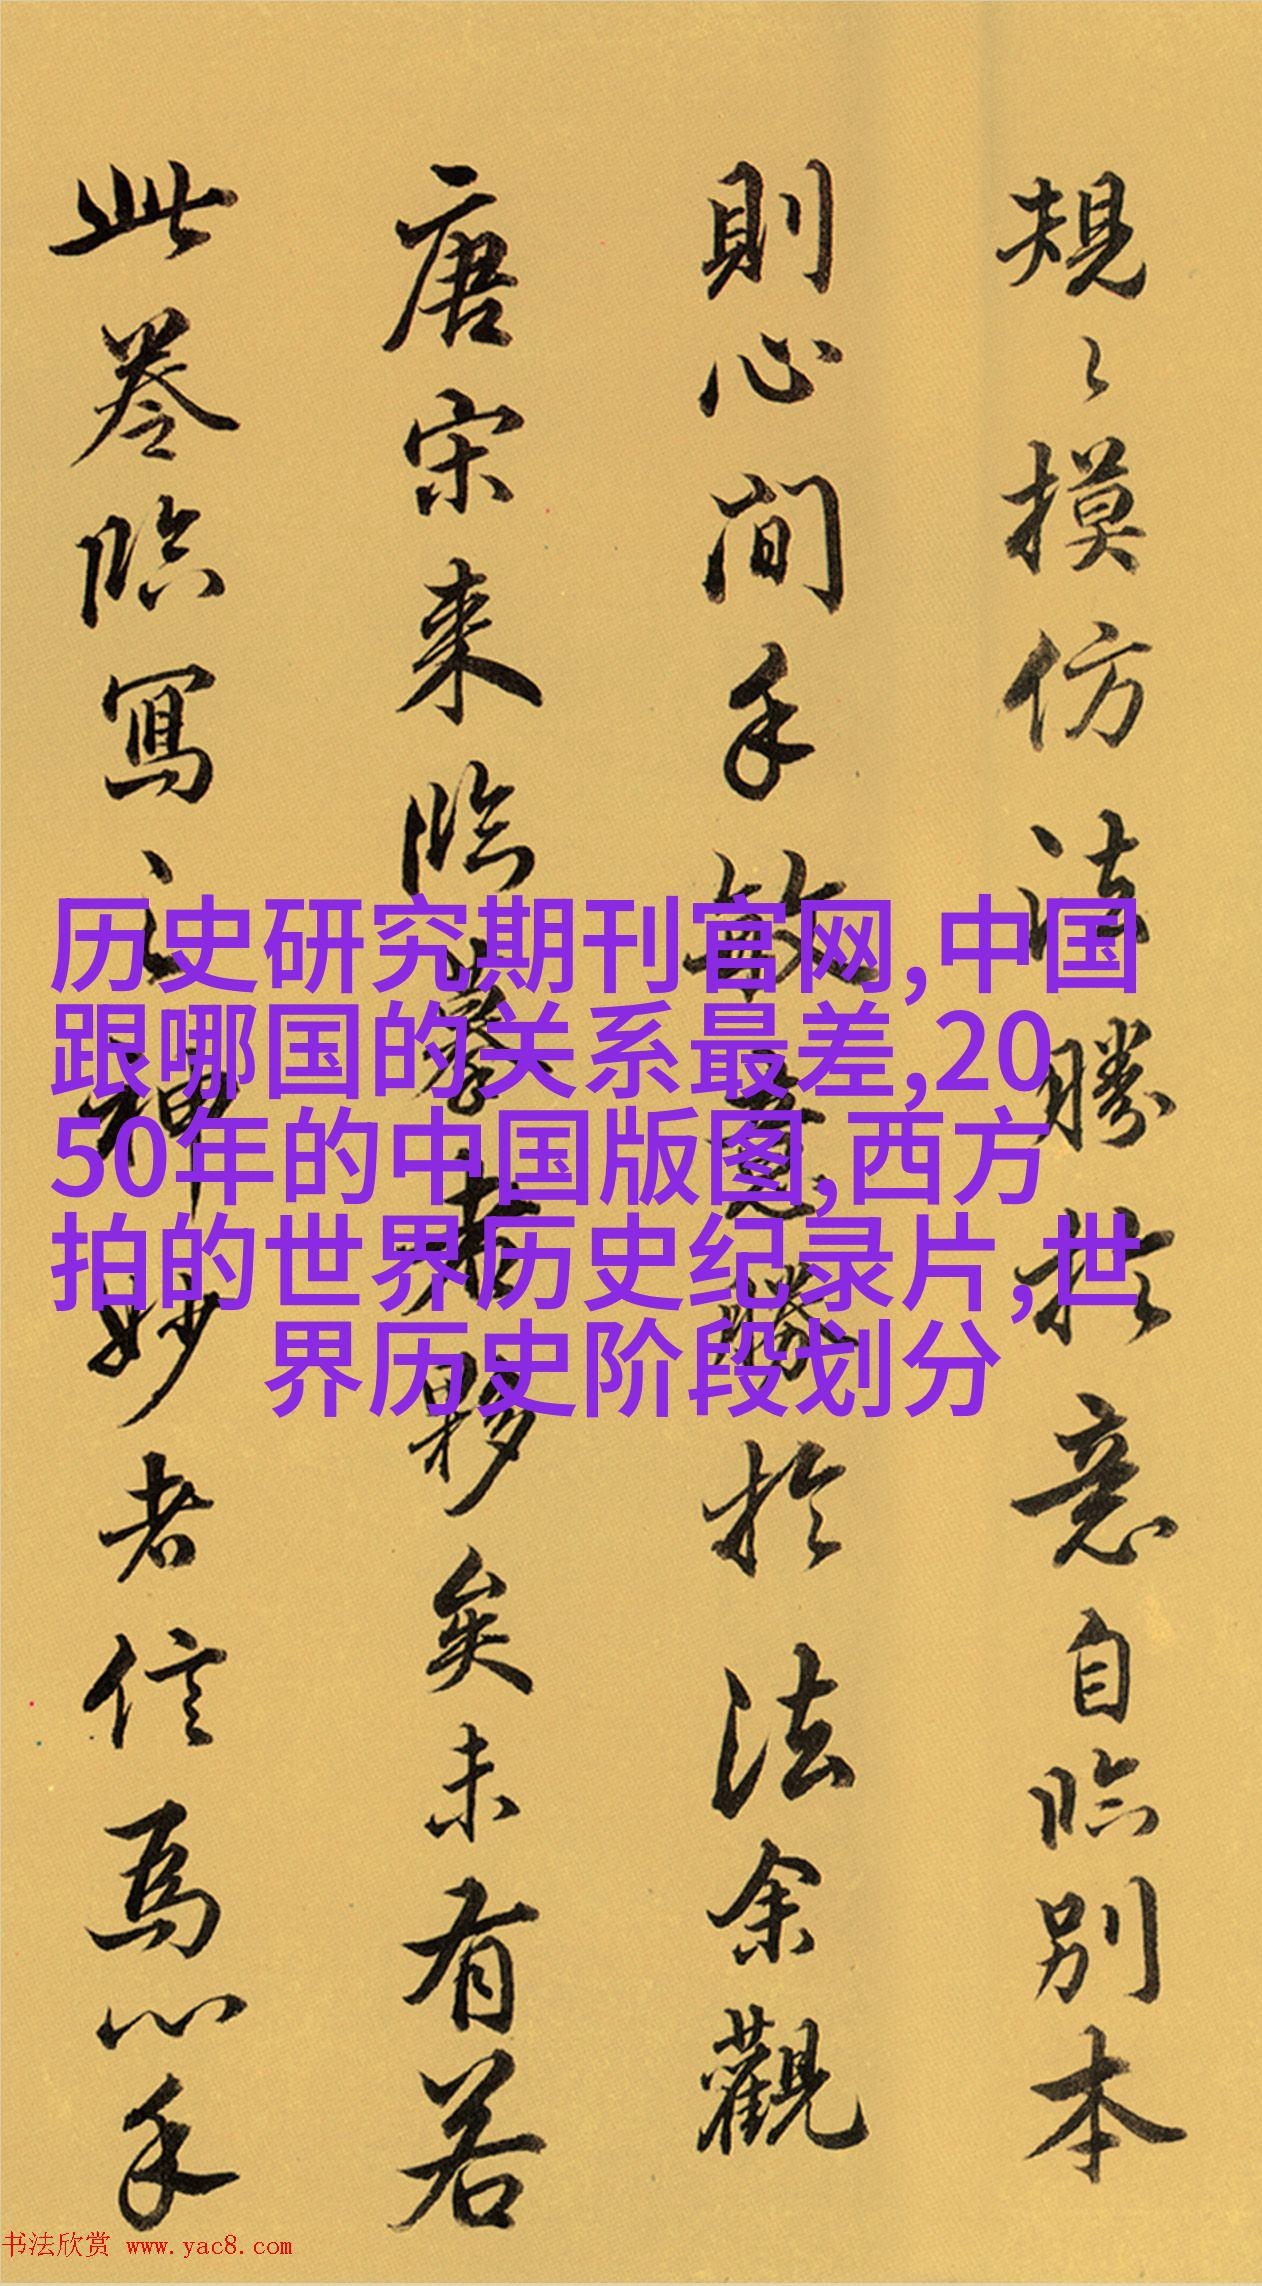 規々摸仿法勝於意自臨別本
則心间手敏意勝於法余觀
唐宋来臨摹者夥矣未有若
此卷臨寫之神妙者信爲心手
历史研究期刊官网,中国
跟哪国的关系最差,20
50年的中国版图,西方
拍的世界历史纪录片,世
界历史阶段划分
书法欣赏 www.yac8.com